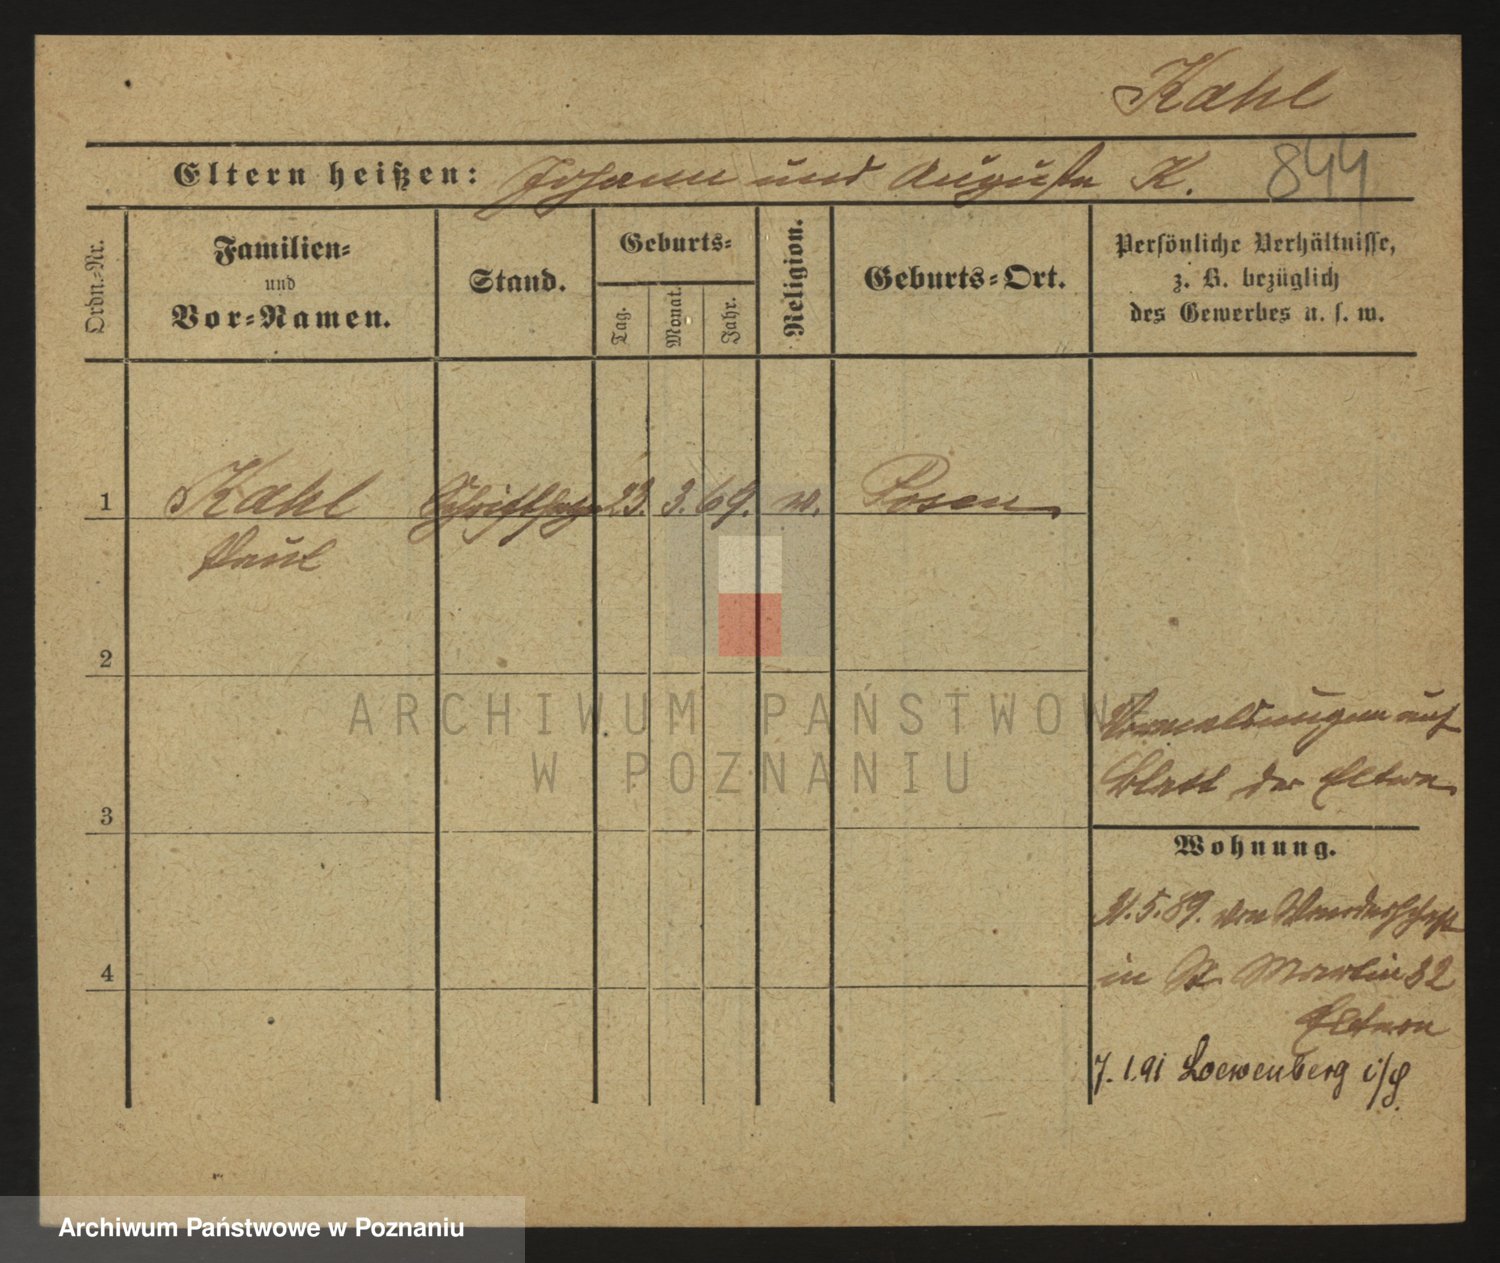 Kahl
844
Eltern heißen: Johann und Auguste K.
Ordn.-Nr.
Familien-
und
Vor-Namen.
Stand.
Geburts-
Tag.
Monat.
Jahr.
Religion.
Geburts-Ort.
Persönliche Verhältnisse,
z. B. bezüglich
des Gewerbes u. s. w.
1 Kahl Schriftsetzer 23. 3. 69. Posen
Paul
2
ARCHIWUM PAŃSTWOWE
W POZNANIU
auf
Blatt der Eltern
3
Wohnung.
5. 89. von Wanderschaft
4
in St. Martin 32
Eltern
7. 1. 91 Loewenberg i/S.
Archiwum Państwowe w Poznaniu